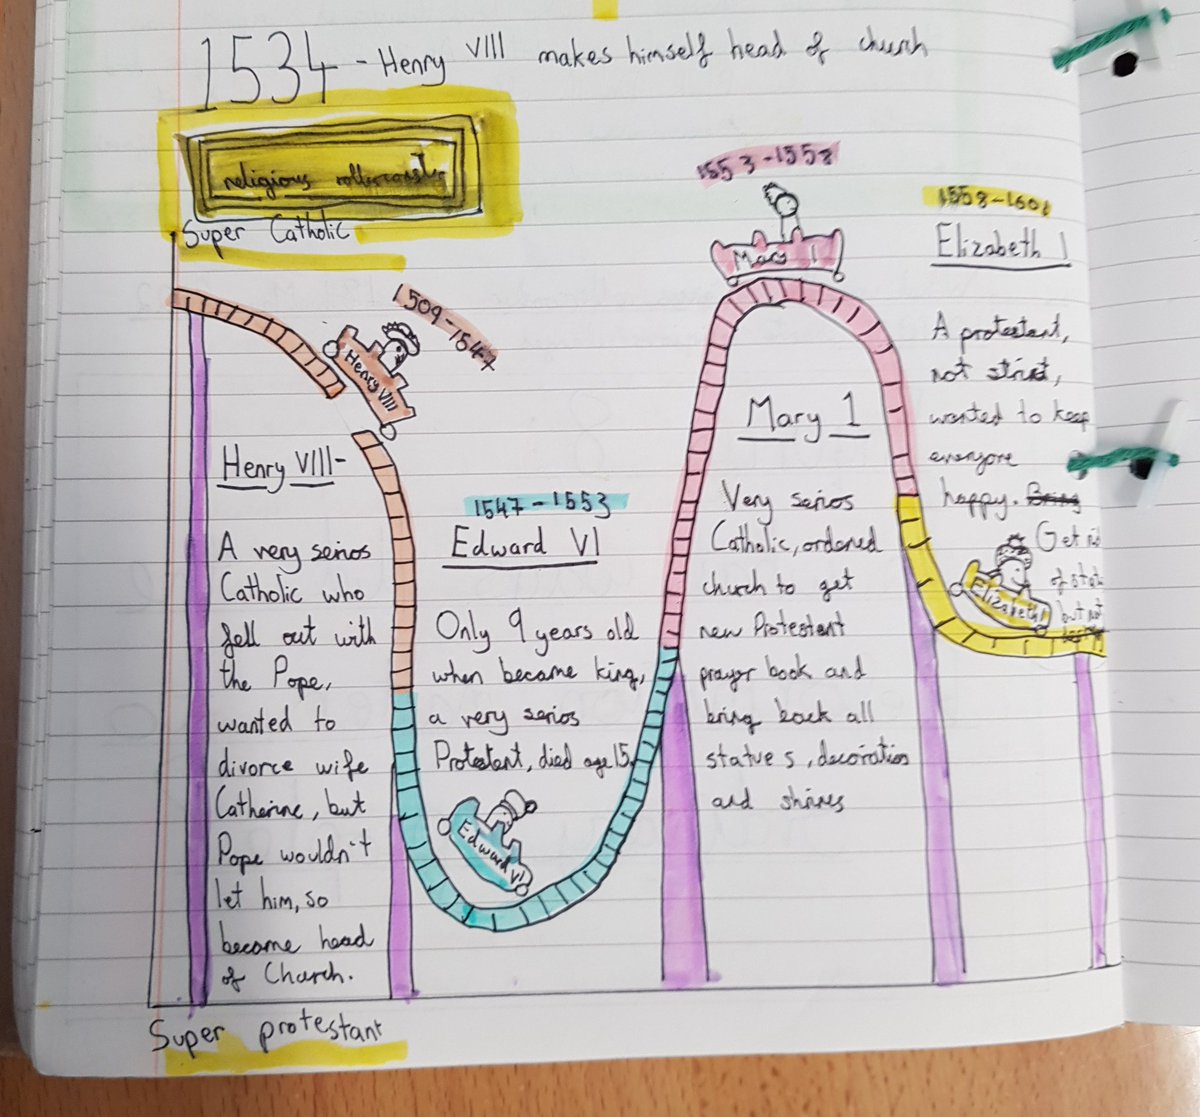 1534 - Henry VIII makes himself head of church
religious rollercoaster
Super Catholic
1509-1547
Henry VIII
Henry VIII-
A very serios
Catholic who
fell out with
the Pope,
wanted to
divorce wife
Catherine, but
Pope wouldn't
let him, so
became head
of Church.
1547-1553
Edward VI
Only 9 years old
when became king,
a very serios
Protestent, died age 15.
Edward VI
1553-1558
Mary 1
Mary 1
Very serios
Catholic, ordered
church to get
new Protestant
prayer book and
bring back all
statues, decoration
and shrines
1558-1603
Elizabeth 1
A protestant,
not strict,
wanted to keep
everyone
happy. Bring
Get rid
of
but not
Elizabeth 1
Super protestant